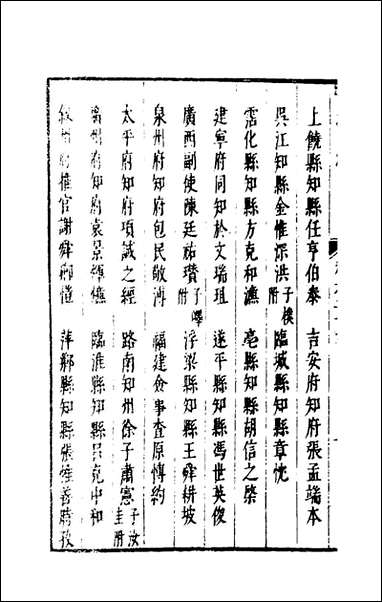 上饒縣知縣任亨伯泰 吉安府知府張孟端本
吳江知縣金惟深洪子樸附 臨城縣知縣章忱
霑化縣知縣方克和濂 亳縣知縣胡信之棨
建寧府同知於文瑞瑄 遂平縣知縣馮世英俊
廣西副使陳廷祐瓚子嘩附 浮梁縣知縣王舜耕坡
泉州府知府包民敬溥 福建僉事查原博約
太平府知府項誠之經 路南知州徐子肅憲子汝圭附
州府知府袁景輝 臨淮縣知縣呂克中和
州府推官謝舜卿愷 萍鄉縣知縣張惟善時孜